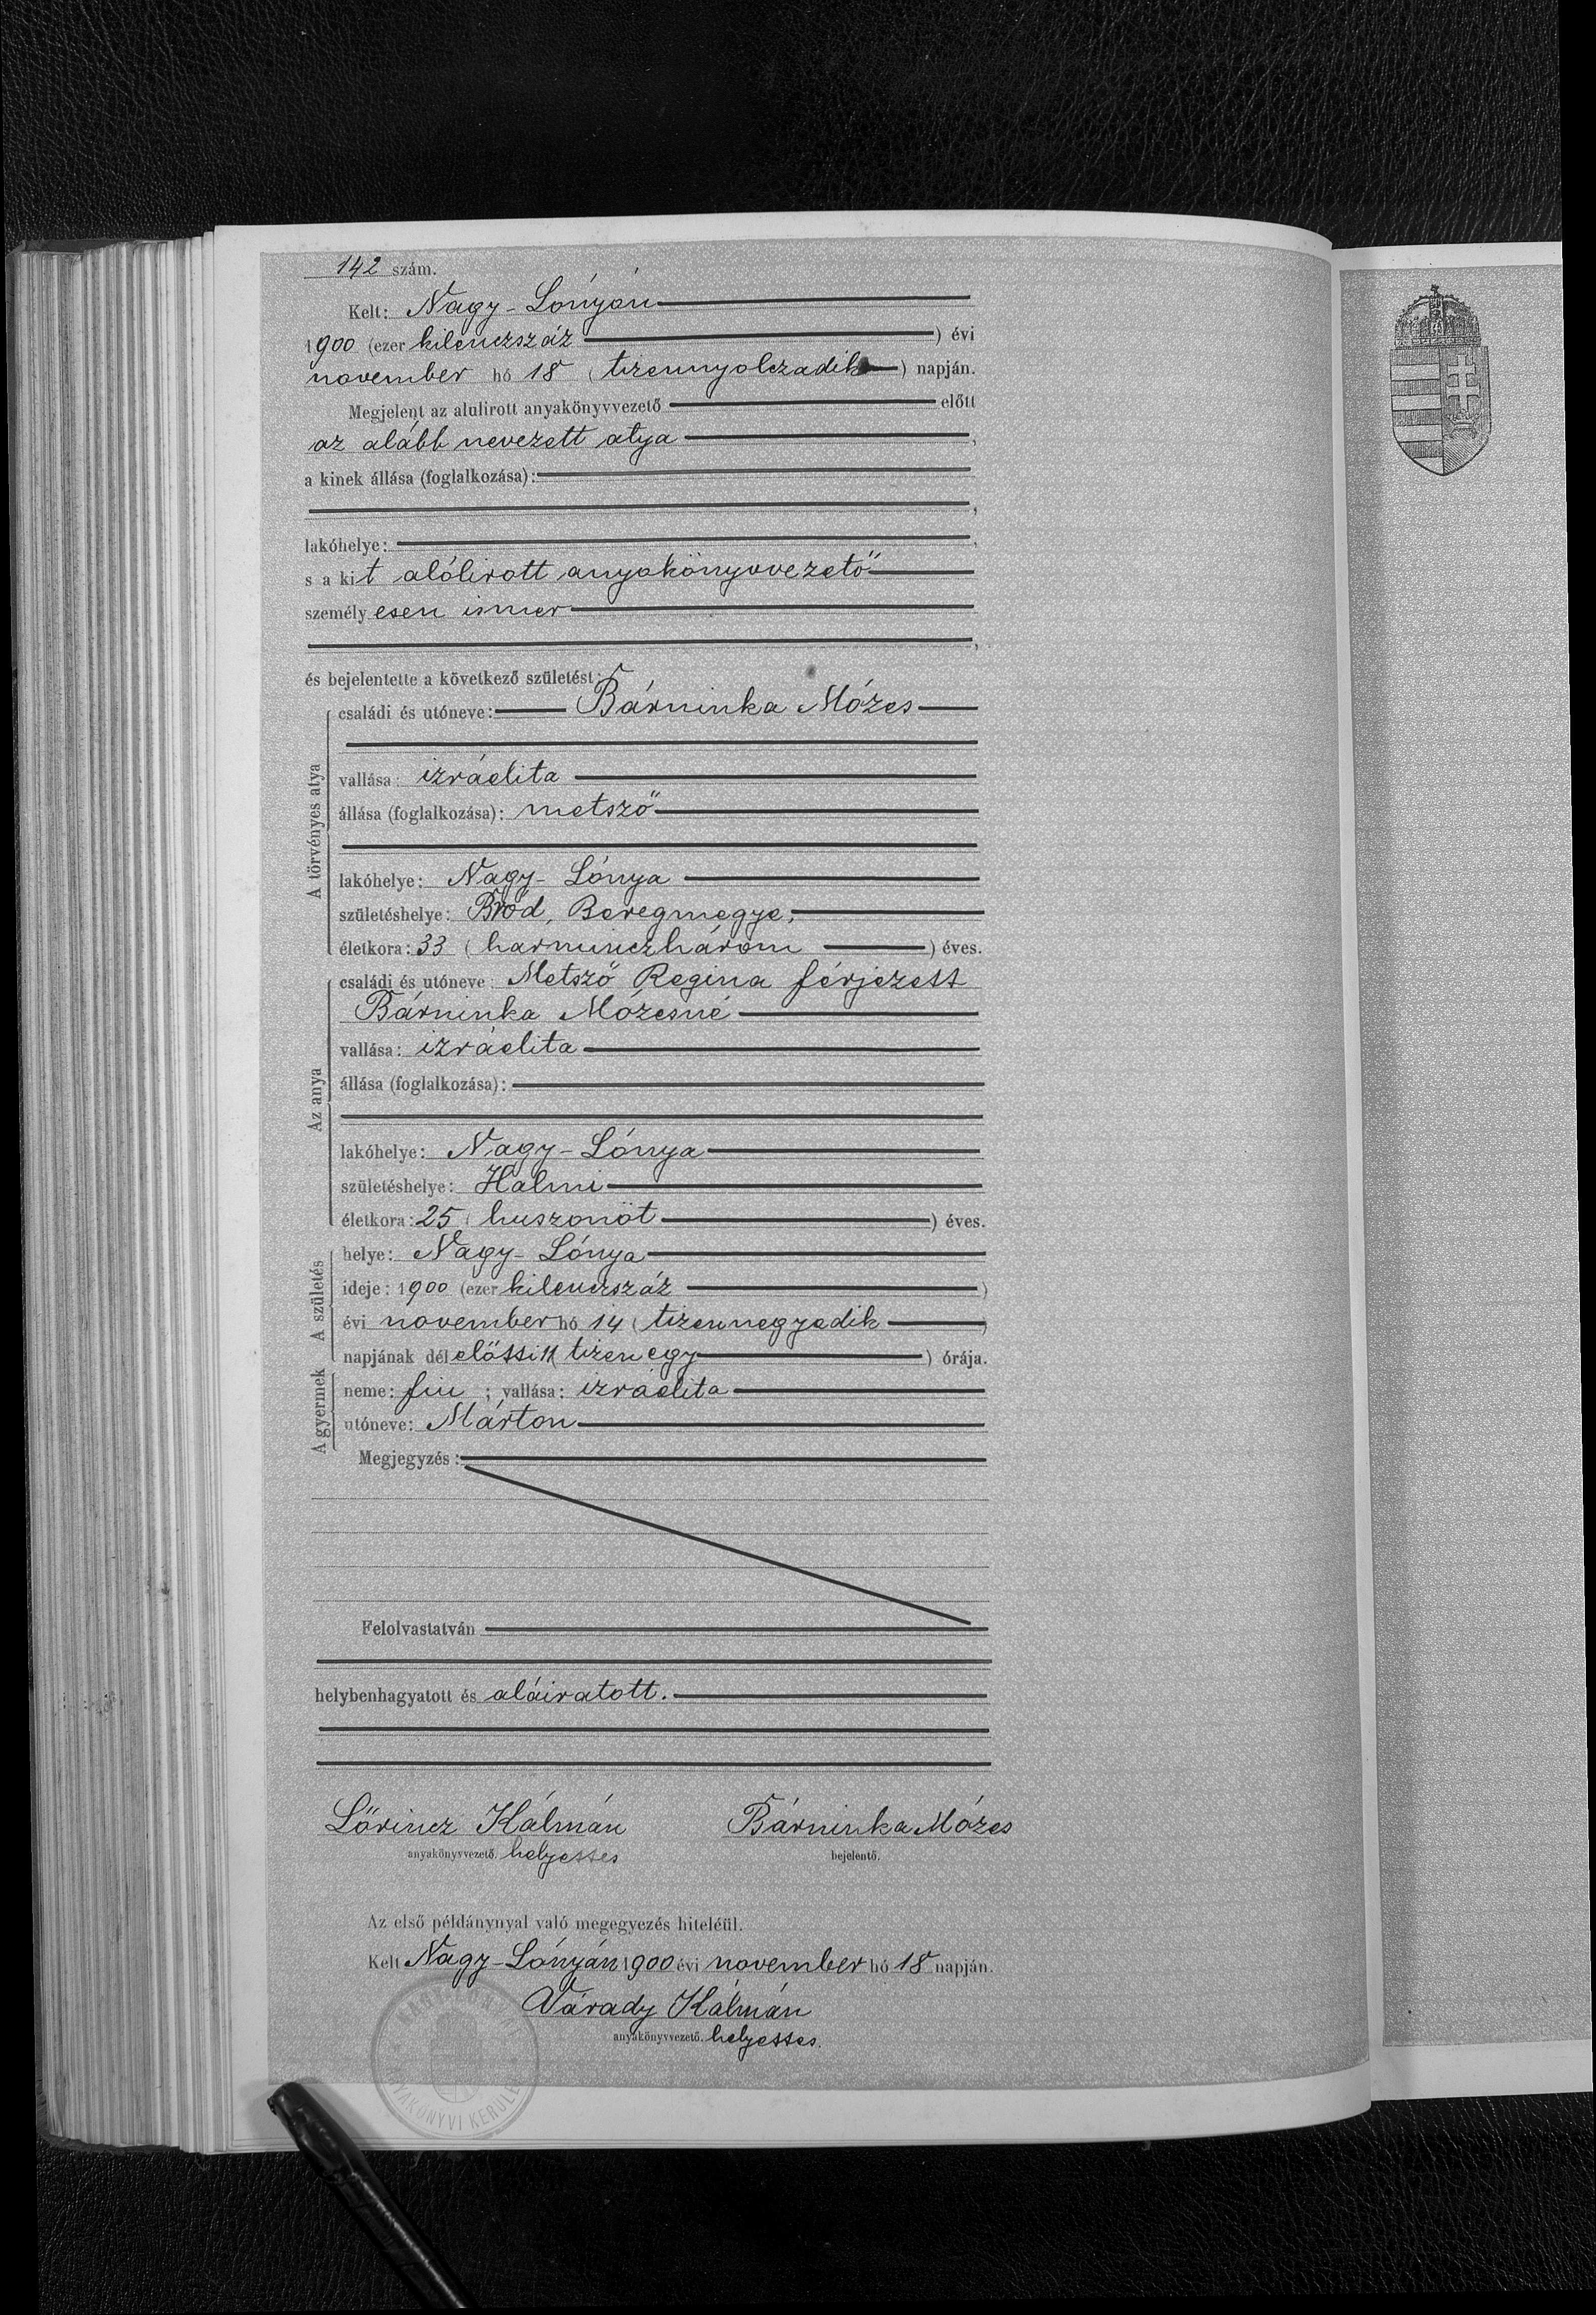 142 szám.
Kelt: Nagy-Lónyán
1900 (ezer kilenczszáz ) évi
november hó 18 ( tizennyolczadik ) napján.
Megjelent az alulirott anyakönyvvezető előtt
az alább nevezett atya ,
a kinek állása (foglalkozása):
,
lakóhelye: ,
s a kit alólirott anyakönyvvezető
személyesen ismer
,
és bejelentette a következő születést:
A törvényes atya
családi és utóneve: Bárninka Mózes
vallása: izráelita
állása (foglalkozása): metsző
lakóhelye: Nagy-Lónya
születéshelye: Bród, Beregmegye,
életkora: 33 ( harminczhárom ) éves.
Az anya
családi és utóneve: Metsző Regina férjezett
Bárninka Mózesné
vallása: izráelita
állása (foglalkozása):
lakóhelye: Nagy-Lónya
születéshelye: Halmi
életkora: 25 ( huszonöt ) éves.
A születés
helye: Nagy-Lónya
ideje: 1900 (ezer kilenczszáz )
évi november hó 14 ( tizennegyedik )
napjának délelőtti 11 ( tizenegy ) órája.
A gyermek
neme: fiu ; vallása: izráelita
utóneve: Márton
Megjegyzés:
Felolvastatván
helybenhagyatott és aláiratott.
Lőrincz Kálmán Bárninka Mózes
anyakönyvvezető. helyettes bejelentő.
Az első példánynyal való megegyezés hiteléül.
Kelt Nagy-Lónyán 1900 évi november hó 18 napján.
Várady Kálmán
anyakönyvvezető. helyettes.
ANYAKÖNYVI KERÜLET